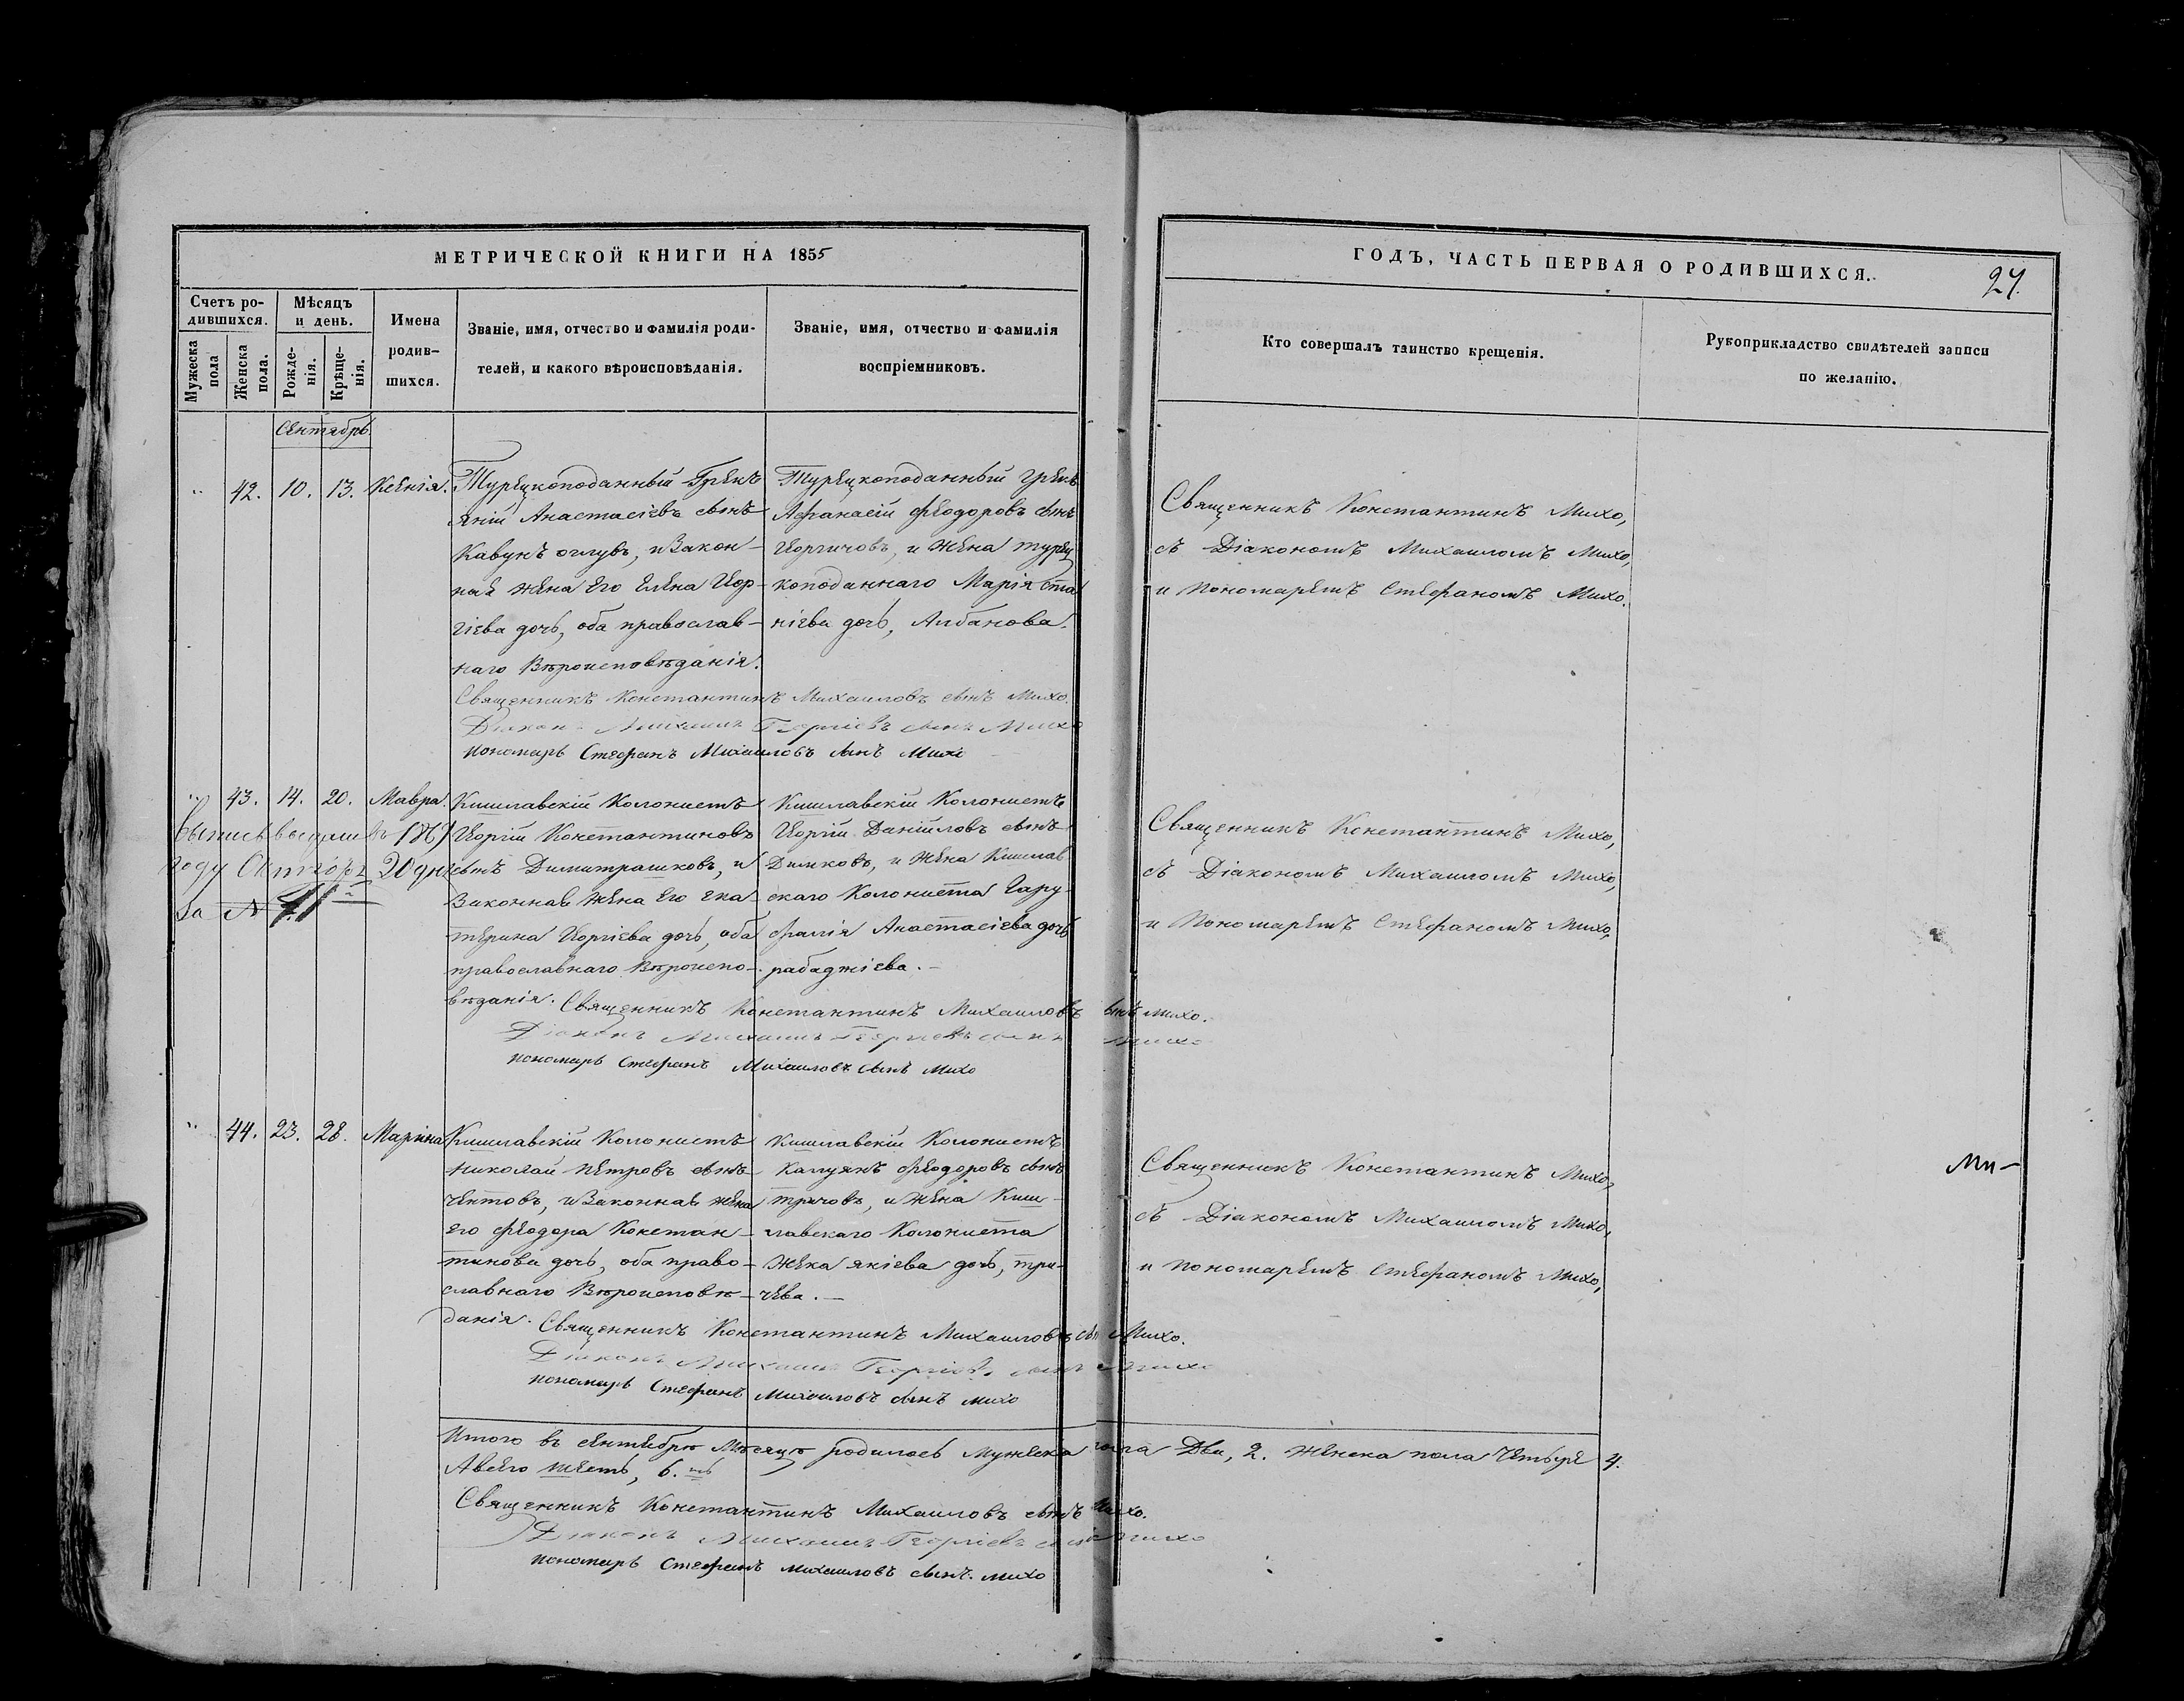 МЕТРИЧЕСКОЙ КНИГИ НА 1855
ГОДЪ, ЧАСТЬ ПЕРВАЯ О РОДИВШИХСЯ.
Счетъ ро-
дившихся.
Мѣсяцъ
и день.
Имена
родив-
шихся.
Званіе, имя, отчество и фамилія роди-
телей, и какого вѣроисповѣданія.
Званіе, имя, отчество и фамилія
воспріемниковъ.
Мужеска
пола
Женска
пола.
Рожде-
нія.
Крѣще-
нія.
Кто совершалъ таинство крещенія.
Рукоприкладство свидѣтелей записи
по желанію.
Сентябрь.
42. 10. 13. Ксенія.
Турецкоподанный Грекъ
яній Анастасіевъ сынъ
Кавунъ оглувъ, и Закон-
ная жена Его Елена Геор-
гіева дочь, оба православ-
наго Вѣроисповѣданія.
Турецкоподанный Грекъ
Афанасій Феодоровъ сынъ
Георгичовъ, и жена турец
коподаннаго Марія Ста
ніева дочь, Албанова.
Священникъ Константинъ Михо,
съ Діакономъ Михаиломъ Михо,
и Пономаремъ Стефаномъ Михо.
Священникъ Константинъ Михаиловъ сынъ Михо.
Діаконъ Михаилъ Георгіевъ сынъ Михо
пономарь Стефанъ Михаиловъ сынъ Михо
43. 14. 20. Мавра.
году Октября 20 дня
за №
Кишлавскій Колонистъ
Георгій Константиновъ
сынъ Димитрашковъ, и
Законная жена Его Ека
терина Георгіева дочь, оба
православнаго Вѣроиспо-
вѣданія.
Кишлавскій Колонистъ
Георгій Даніиловъ сынъ
Димковъ, и жена Кишлав
скаго Колониста Гару
фалія Анастасіева дочь
рабаджіева.
Священникъ Константинъ Михо,
съ Діакономъ Михаиломъ Михо,
и Пономаремъ Стефаномъ Михо,
Священникъ Константинъ Михаиловъ сынъ Михо.
Діаконъ Михаилъ Георгіевъ сынъ Михо
пономарь Стефанъ Михаиловъ сынъ Михо
44. 23. 28. Марина
Кишлавскій Колонистъ
Николай Петровъ сынъ
Чентовъ, и Законная жена
его Феодора Констан-
тинова дочь, оба право-
славнаго Вѣроисповѣ-
данія.
Кишлавскій Колонистъ
Калуянъ Феодоровъ сынъ
тричовъ, и жена Киш-
лавскаго Колониста
Жека якіева дочь, три-
чева.
Священникъ Константинъ Михо,
съ Діакономъ Михаиломъ Михо,
и Пономаремъ Стефаномъ Михо,
Священникъ Константинъ Михаиловъ сы Михо.
Діаконъ Михаилъ Георгіевъ сынъ Михо
пономарь Стефанъ Михаиловъ сынъ Михо
Итого въ сентябрѣ Мѣсяцѣ родилось Мужеска пола Два, 2. Женска пола Четыре 4.
Авсего шесть, 6.
Священникъ Константинъ Михаиловъ сынъ Михо.
Діаконъ Михаилъ Георгіевъ сынъ Михо
пономарь Стефанъ Михаиловъ сынъ Михо